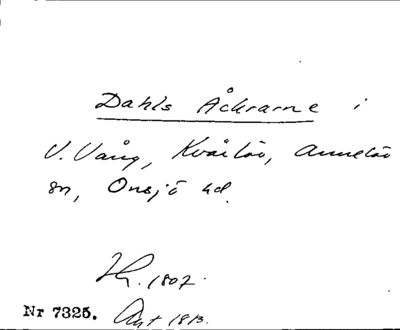 Dahls Åkrarne i
V. Vång, Kvärlöv, Annelöv
sn, Onsjö hd.
Hr. 1807.
Nr 7325. Ant 1813.